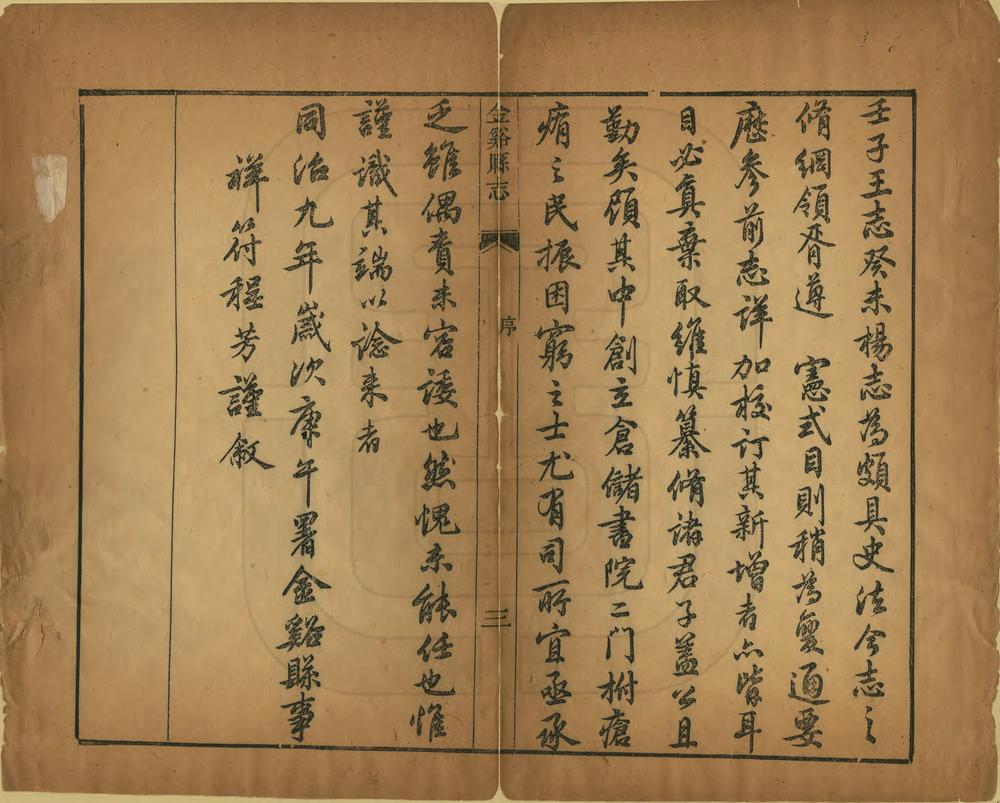 壬子王志癸未楊志為頗具史法今志之
脩綱領胥遵　憲式目則稍為變通要
歷參前志詳加校訂其新增者亦皆耳
目必真棄取維慎纂脩諸君子蓋公且
勤矣顧其中創立倉儲書院二門拊瘡
痏之民振困窮之士尤有司所宜亟承
金谿縣志
序
三
乏雖偶賚未容諉也然愧未能任也惟
謹識其端以諗来者
同治九年歲次庚午署金谿縣事
祥符程芳謹敘